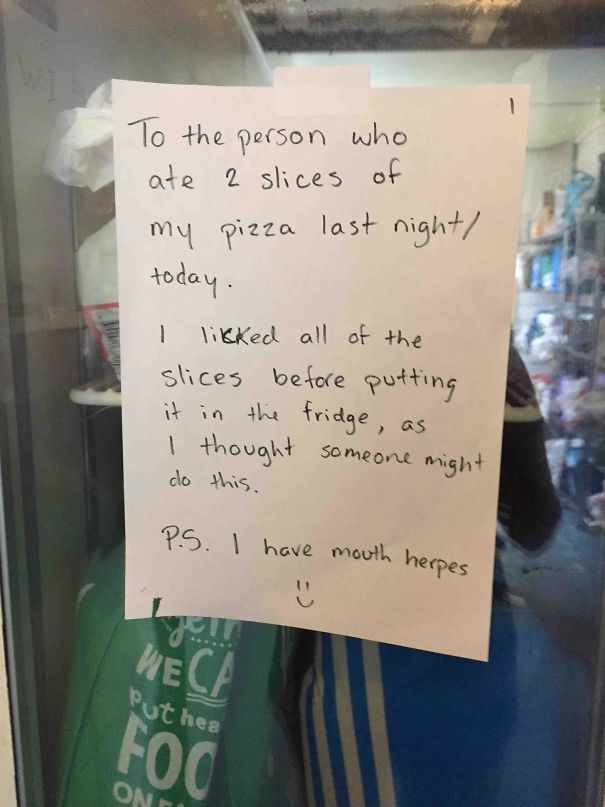 To the person who
ate 2 slices of
my pizza last night/
today.
I licked all of the
slices before putting
it in the fridge, as
I thought someone might
do this.
P.S. I have mouth herpes
:)
WE CA
Put hea
FOO
ON